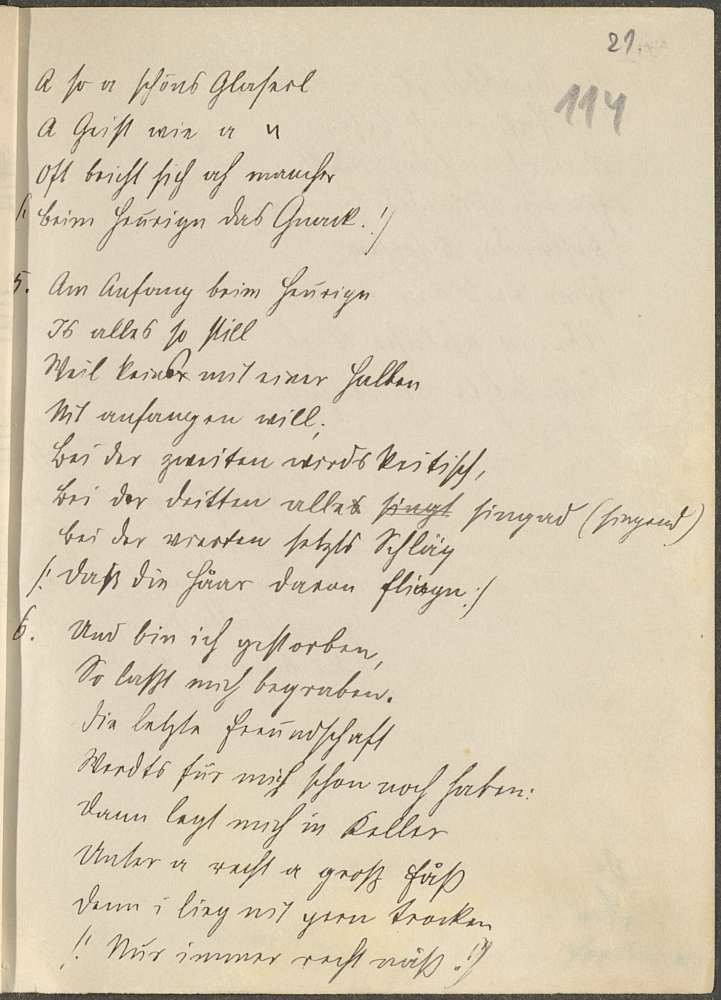 21.
114
A so a schöns Glaserl
A Geist wie a "
Oft bricht sich ah mancher
/: beim Heurign das Gnack. :/
5. Am Anfang beim Heurign
Is alles so still
Weil keiner mit einer Halben
Nit anfangen will.
Bei der zweiten wirds kritisch,
Bei der dritten alles singt singad (singend)
bei der vierten setzts Schläg
/: daß die Håar davon fliagn :/
6. Und bin ich gestorben,
So laßt mich begraben.
die letzte Freundschaft
Werdts für mich schon noch haben:
dann legt mich in Keller
Unter a recht a groß Fåß
denn i lieg nit gern trocken
/: Nur immer recht nåß. :/